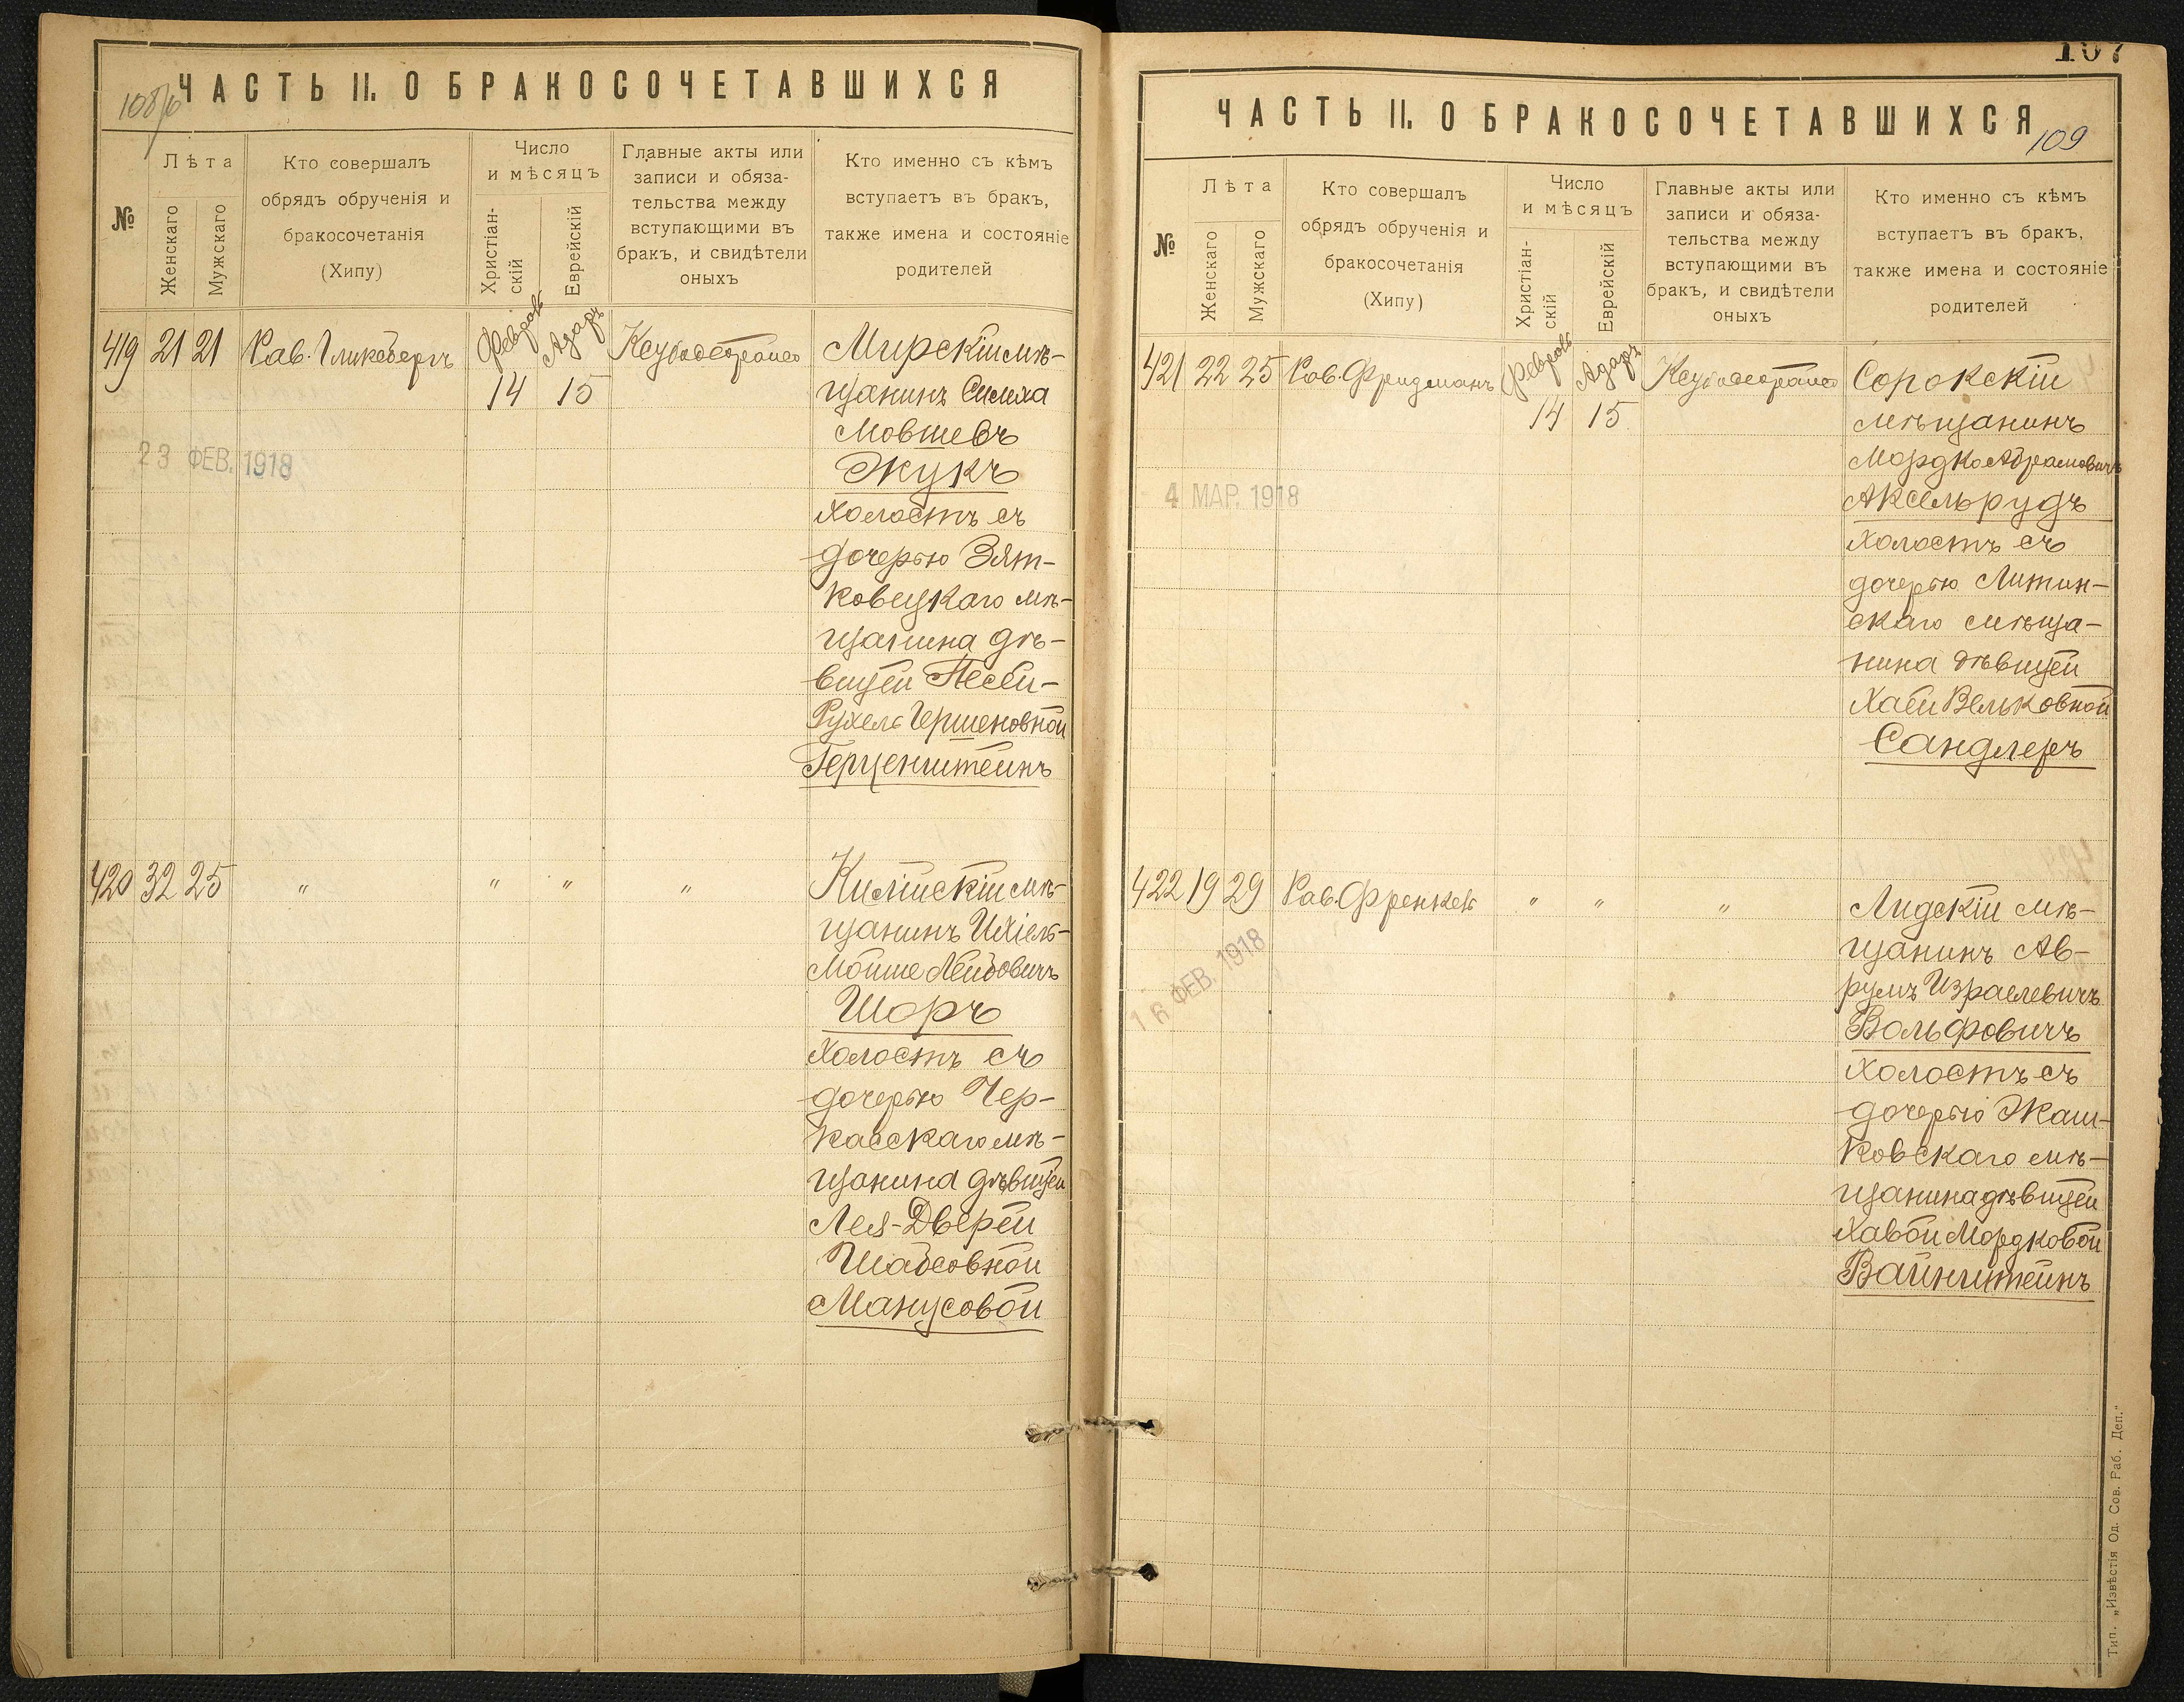 108/б
ЧАСТЬ II. О БРАКОСОЧЕТАВШИХСЯ
№
Лѣта
Женскаго
Мужскаго
Кто совершалъ
обрядъ обрученія и
бракосочетанія
(Хипу)
Число
и мѣсяцъ
Христіан-
скій
Еврейскій
Главные акты или
записи и обяза-
тельства между
вступающими въ
бракъ, и свидѣтели
оныхъ
Кто именно съ кѣмъ
вступаетъ въ бракъ,
также имена и состояніе
родителей
419 21 21 Рав. Гликсбергъ Февраль Адаръ Мирскій мѣ-
14 15 щанинъ Симха
Мовшевъ
23 ФЕВ. 1918
Жукъ
холостъ съ
дочерью Зят-
ковецкаго мѣ-
щанина дѣ-
вицей Песей-
Рухель Гершеновной
Герценштейнъ
420 32 25 " " " " Килійскій мѣ-
щанинъ Ихіель-
Мойше Лейбовичъ
Шоръ
холостъ съ
дочерью Чер-
касскаго мѣ-
щанина дѣвицей
Лея-Двейрей
Шабсовной
Манусовой
107
ЧАСТЬ II. О БРАКОСОЧЕТАВШИХСЯ
109
№
Лѣта
Женскаго
Мужскаго
Кто совершалъ
обрядъ обрученія и
бракосочетанія
(Хипу)
Число
и мѣсяцъ
Христіан-
скій
Еврейскій
Главные акты или
записи и обяза-
тельства между
вступающими въ
бракъ, и свидѣтели
оныхъ
Кто именно съ кѣмъ
вступаетъ въ бракъ,
также имена и состояніе
родителей
421 22 25 Рав. Фридманъ Февраль Адаръ Сорокскій
14 15 мѣщанинъ
Мордко Абрамовичъ
4 МАР. 1918
Аксельрудъ
холостъ съ
дочерью Литин-
скаго мѣща-
нина дѣвицей
Хаей Вельковной
Сандлеръ
422 19 29 Рав. Френкель " " " Лидскій мѣ-
щанинъ Ав-
румъ Израелевичъ
16 ФЕВ. 1918
Вольфовичъ
холостъ съ
дочерью Жаш-
ковскаго мѣ-
щанина дѣвицей
Хавой Мордковой
Вайнштейнъ
Тип. „Извѣстія Од. Сов. Раб. Деп."